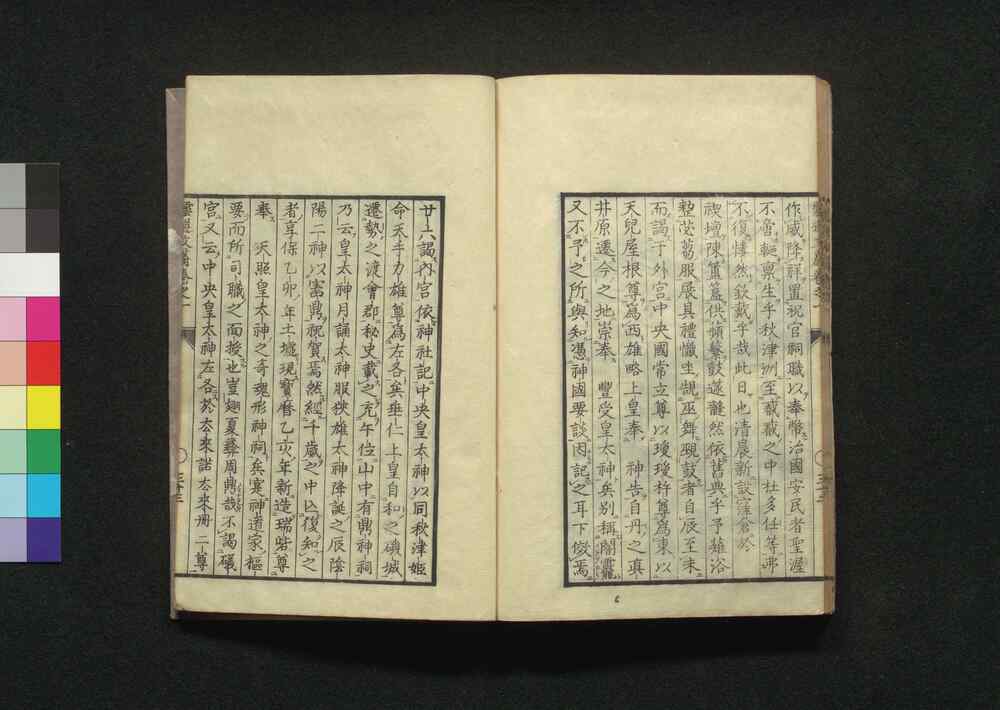 作威降鮮置祝官祠職以奉幣治國安民者聖渥
不魯輙票生乎秋津洲至蕺蕺之中杜多任等弗
不復悽然欽戴乎哉此日也清晨新設窪倉於
禊壇陳簠簋供蘋蘩鼓蓬韼然依舊典乎予薙浴
整苾蒭服展具禮懺坐覩巫舞覡鼓者自辰至未
而謁于外宮中央國常立尊以瓊瓊杵尊爲東以
天兒屋根尊爲西雄略上皇奉 神告自丹之真
井原遷今之地崇奉 豐受皇太神矣别稱
又不予之所與知憑神國要談因記之耳下倣焉
廿六謁内宮依神社記中央皇太神以同秋津姫
命天手力雄尊爲左各矣垂仁上皇自和之磯城
遷勢之渡會郡秘史載之元年位山中有鼎神祠
乃云皇太神月誦太神服狹雄太神降誕之辰陰
陽二神以寳鼎祝賀焉然經千歲之中亡復知之
者享保乙卯年土壚現寳曆乙亥年新造瑞砦尊
奉 天照皇太神之奇魂形神祠矣寔神道家樞
要而所司職之面授也豈翅夏彝周鼎哉不謁礒
宮又云中央皇太神左各於太來諾太來册二尊